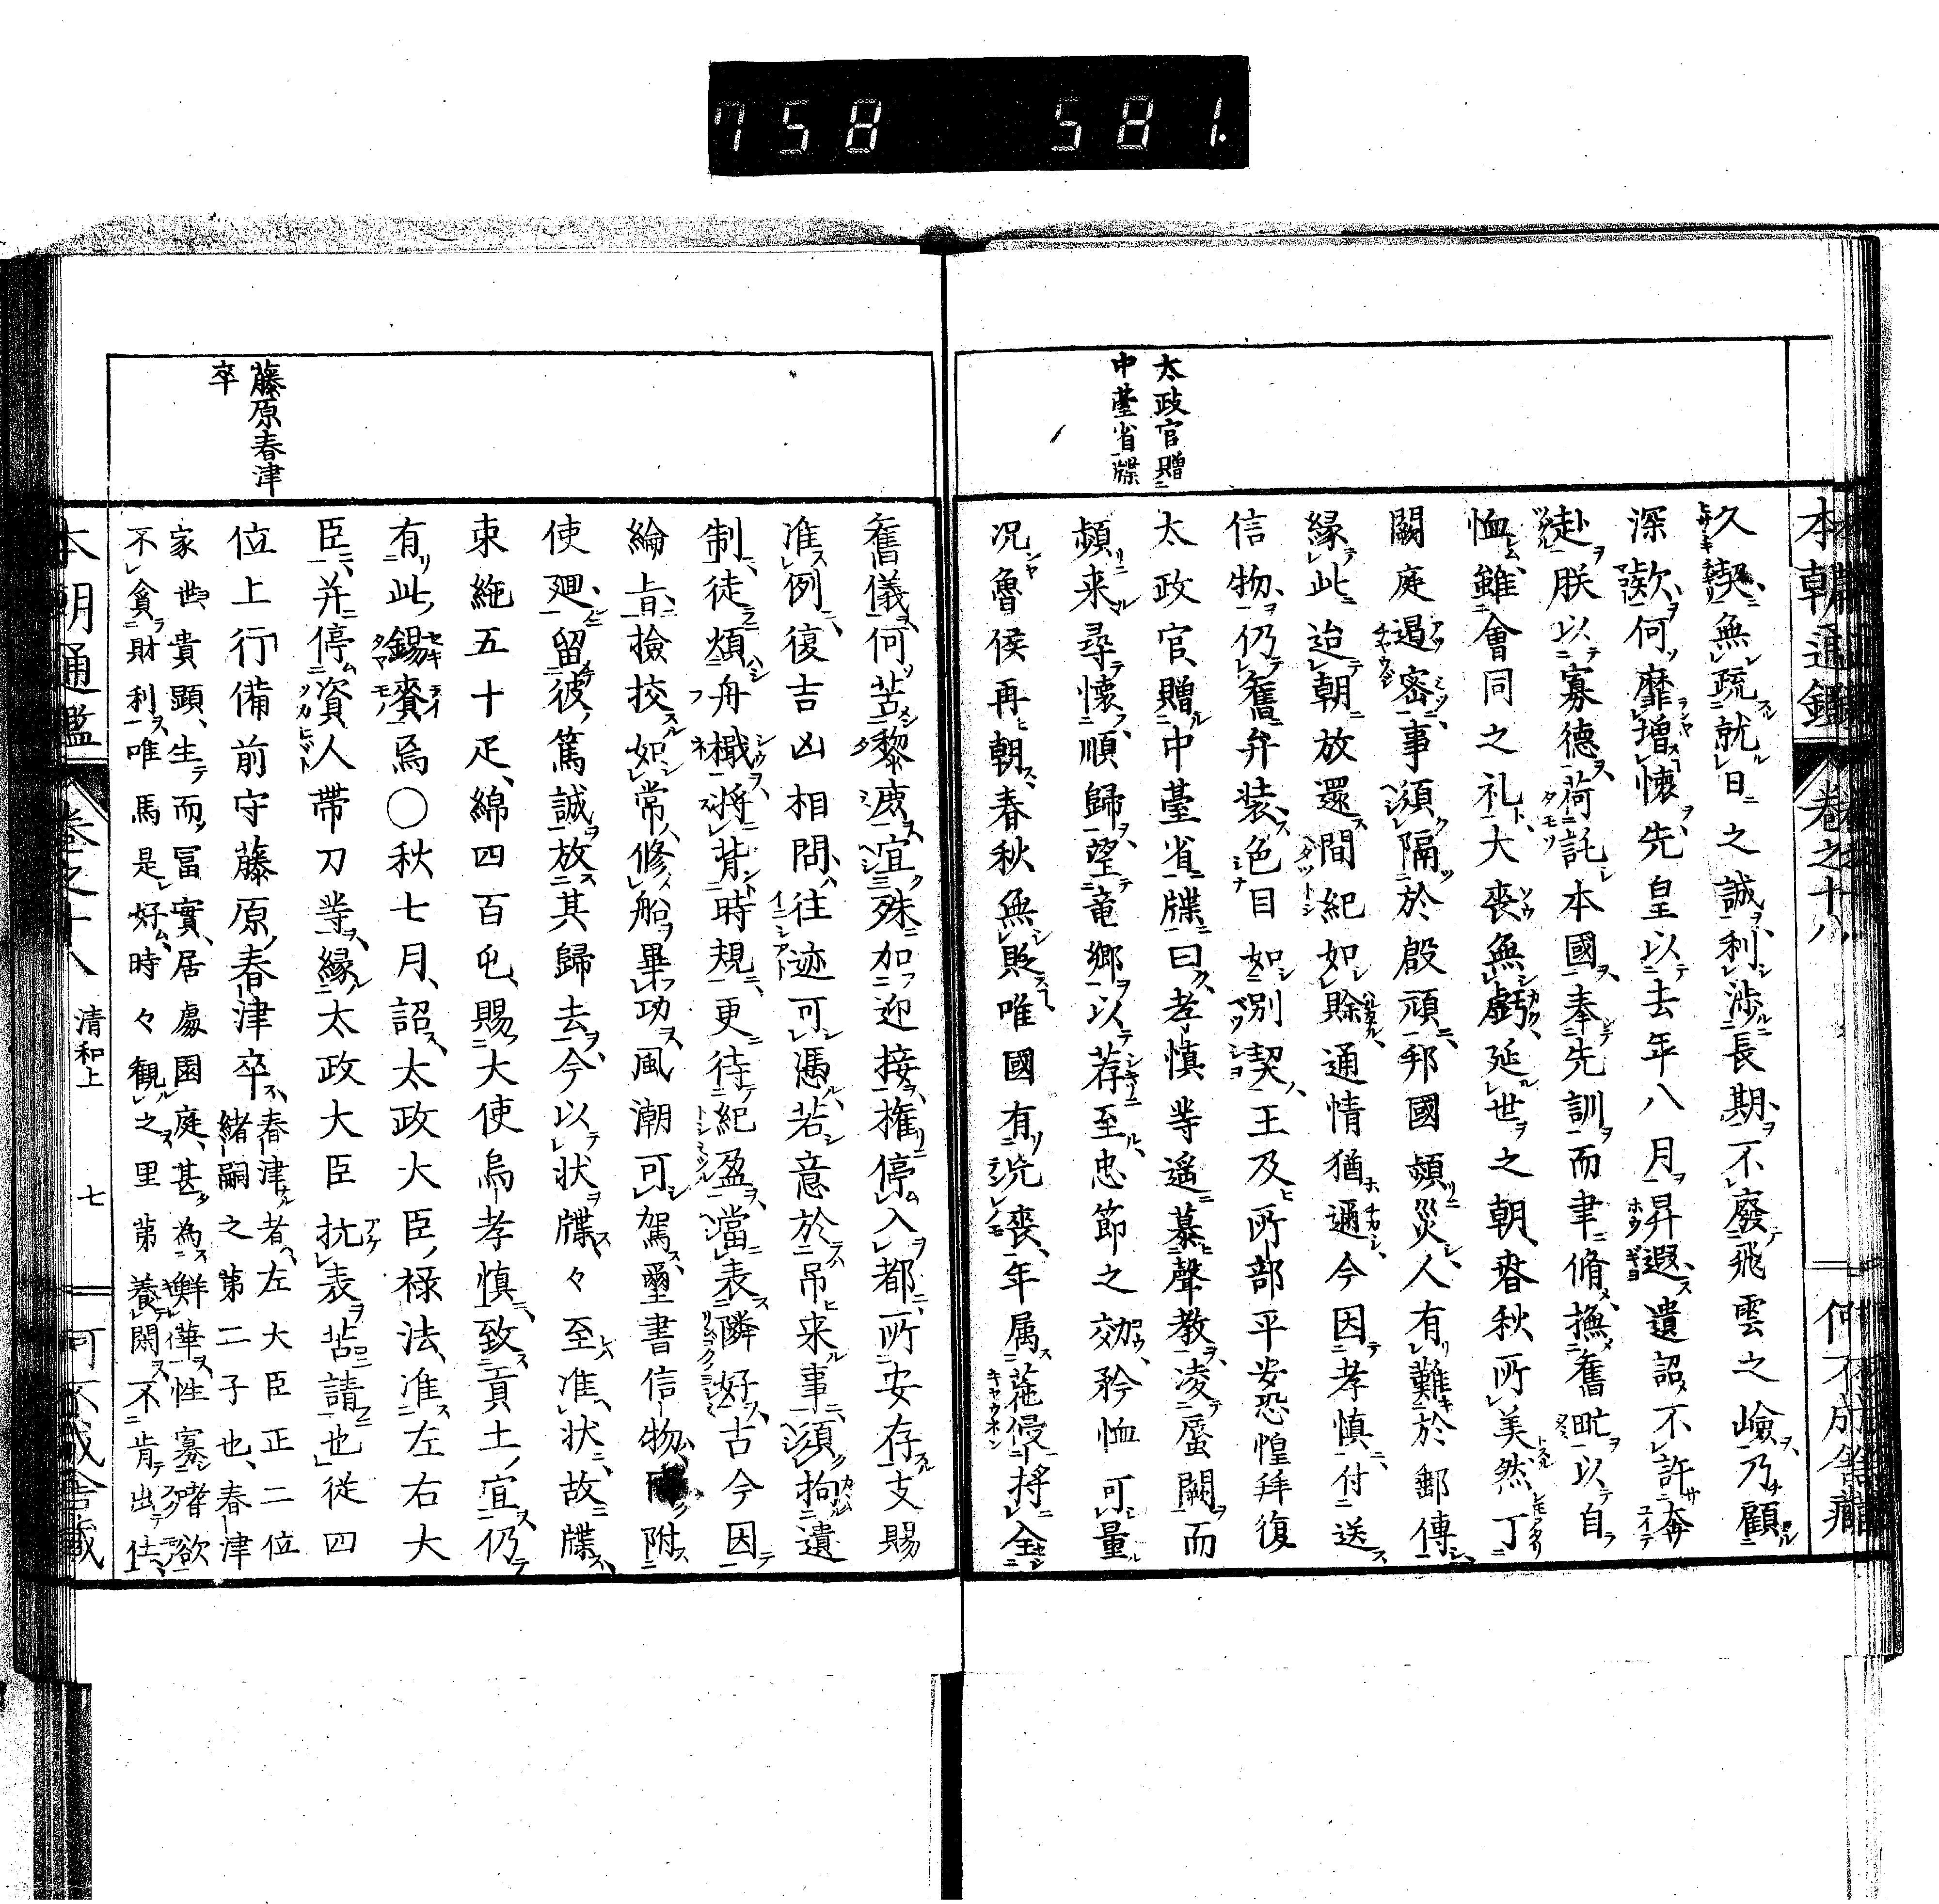 758 581.
本朝通鑑 卷之十八
太政官贈
中臺省牒
久契無疏就日之誠利涉長期不廢飛雲之嶮乃顧
深款何靡增懷先皇以去年八月昇遐遺詔不許奔
赴朕以寡德荷託本國奉先訓而聿脩撫舊甿以自
恤雖會同之礼大喪無虧延世之朝春秋所美然丁
闕庭遏密事須隔於殷頑邦國頻災人有難於郵傳
緣此迨朝放還間紀如賖通情猶邇今因孝慎付送
信物仍舊弁装色目如別契王及所部平安恐惶拜復
太政官贈中臺省牒曰孝慎等遥慕聲教凌蜃闕而
頻来尋懷順歸望竜鄉以荐至忠節之効矜恤可量
况魯侯再朝春秋無貶唯國有況喪年属蒞侵將全
舊儀何苦黎庶宜殊加迎接權停入都所安存支賜
准例復吉凶相問往迹可馮若意於吊来事須拘遺
制徒煩舟檝將背時規更待紀盈當表隣好古今因
綸旨撿挍如常修船畢功風潮可駕璽書信物附
使廻留彼篤誠放其歸去今以状牒々至准状故牒
束絁五十疋綿四百屯賜大使烏孝慎致貢土宜仍
有此錫賚焉〇秋七月詔太政大臣禄法准左右大
臣并停資人帶刀等緣太政大臣抗表苦請也從四
位上行備前守藤原春津卒春津者左大臣正二位
緒嗣之第二子也春津
家世貴顯生而冨實居處園庭甚為鮮華性寡嗜欲
不貪財利唯馬是好時々觀之里第養閑不肯出仕
藤原春津
卒
本朝通鑑 卷之十八 清和上 七